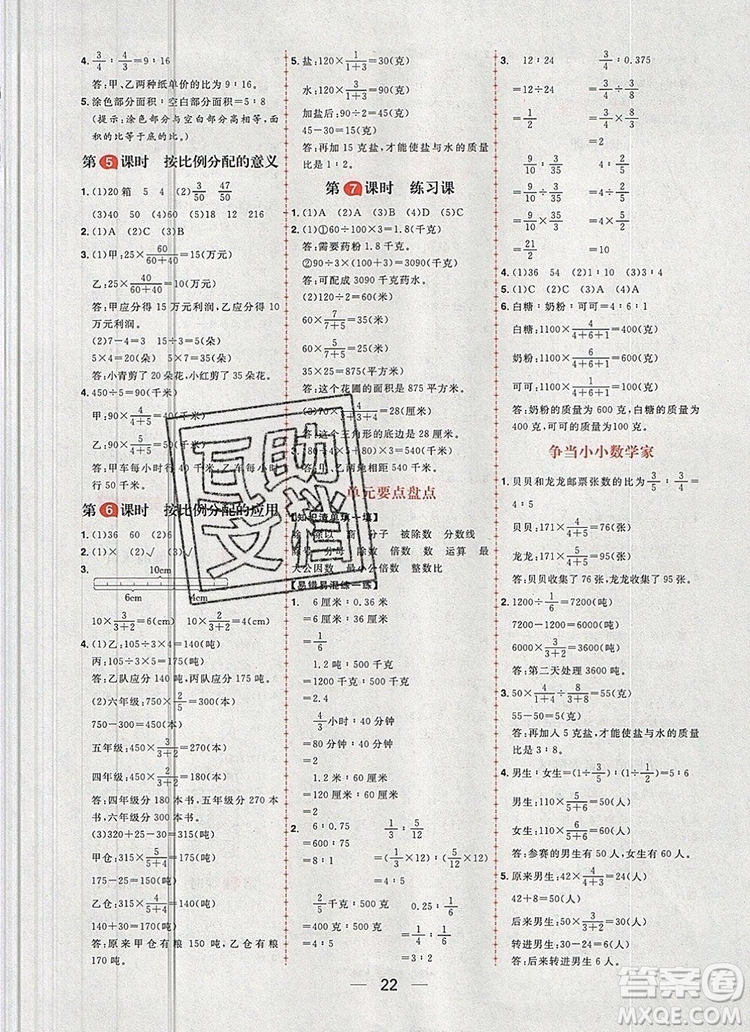 4. 3/4 : 4/3 = 9 : 16
答:甲、乙两种纸单价的比为 9 : 16。
5. 涂色部分面积 : 空白部分面积 = 5 : 8
(提示:涂色部分与空白部分高相等,面
积的比等于底的比。)
第5课时 按比例分配的意义
1. (1)20箱 5 4 (2)3/50 47/50
(3)40 50 (4)5 16 (5)18 12 216
2. (1)A (2)C (3)B
3. (1)甲:25×60/(60+40)=15(万元)
乙:25×40/(60+40)=10(万元)
答:甲应分得 15 万元利润,乙应分得 10
万元利润。
(2)7-4=3 20÷4=5(朵)
5×4=20(朵) 5×7=35(朵)
答:小青剪了 20 朵花,小红剪了 35 朵花。
4. 450÷5=90(千米)
甲:90×4/(4+5)=40(千米)
乙:90×5/(4+5)=50(千米)
答:甲车每小时行 40 千米,乙车每小时
行 50 千米。
第6课时 按比例分配的应用
1. (1)36 60 (2)
2. (1)× (2)✓ (3)✓
3. 10cm
6cm 4cm
10×3/(3+2)=6(cm) 10×2/(3+2)=4(cm)
4. (1)乙:105÷3×4=140(吨)
丙:105÷3×5=175(吨)
答:乙队应分 140 吨,丙队应分 175 吨。
(2)六年级:750×2/5=300(本)
750-300=450(本)
五年级:450×3/(3+2)=270(本)
四年级:450×2/(3+2)=180(本)
答:四年级分 180 本书,五年级分 270
本书,六年级分 300 本书。
(3)320+25-30=315(吨)
甲仓:315×5/(5+4)=175(吨)
175-25=150(吨)
乙仓:315×4/(5+4)=140(吨)
140+30=170(吨)
答:原来甲仓有粮 150 吨,乙仓有粮 170 吨。
5. 盐:120×1/(1+3)=30(克)
水:120×3/(1+3)=90(克)
加盐后:90÷2=45(克)
45-30=15(克)
答:再加 15 克盐,才能使盐与水的质量
比是 1 : 2。
第7课时 练习课
1. (1)A (2)A (3)C (4)D (5)C
2. (1)①60÷100×3=1.8(千克)
答:需要药粉 1.8 千克。
②3×1000+3×30=3090(千克)
答:可配成 3090 千克药水。
(2)120÷2=60(米)
60×7/(7+5)=35(米)
60×5/(7+5)=25(米)
35×25=875(平方米)
答:这个花圃的面积是 875 平方米。
(3)70×4/(3+3+4)=28(厘米)
答:这个三角形的底边是 28 厘米。
540(千米)
答:甲、乙两地相距 540 千米。
单元要点盘点
【知识清单填一填】
除以 商 分子 被除数 分数线
除号 分母 除数 倍数 数 运算 最
大公因数 最小公倍数 整数比
【易错易混练一练】
1. 6 厘米 : 0.36 米
=6 厘米 : 36 厘米
=1/6
1.2 吨 : 500 千克
=1200千克 : 500 千克
=2.4
4/3小时 : 40 分钟
=80 分钟 : 40 分钟
=2
1.2 米 : 60 厘米
=120 厘米 : 60 厘米
=2
2. 6 : 0.75
=600 : 75
=8 : 1
1/6 : 5/12
=(1/6×12) : (5/12×12)
=2 : 5
2/5千克 : 500 克
=400 克 : 500 克
=4 : 5
0.25 : 1/6
=1/4 : 1/6
=3 : 2
3. 12 : 24
=12÷24
=1/2
3/4 : 0.375
=3/4 : 3/8
=3/4÷3/8
=2
9/10 : 3/7
=9/10÷3/7
=21/10
4/5 : 2/25
=4/5÷2/25
=10
4. (1)36 54 (2)A (3)C (4)C
5. 白糖 : 奶粉 : 可可=4 : 6 : 1
白糖:1100×4/(4+6+1)=400(克)
奶粉:1100×6/(4+6+1)=600(克)
可可:1100×1/(4+6+1)=100(克)
答:奶粉的质量为 600 克,白糖的质量为
400 克,可可的质量为 100 克。
争当小小数学家
1. 贝贝和龙龙邮票张数的比为3/5 : 3/4=4 : 5
贝贝:171×4/(4+5)=76(张)
龙龙:171×5/(4+5)=95(张)
答:贝贝收集 76 张,龙龙收集 95 张。
2. 1200÷1/6=7200(吨)
7200-1200=6000(吨)
6000×3/(3+2)=3600(吨)
答:第二天处理 3600 吨。
3. 50×4/(4+1)÷8/(3+8)=55(克)
55-50=5(克)
答:再加入 5 克盐,才能使盐与水的质量
比是 3 : 8。
4. 男生 : 女生=(1÷3/5) : (1÷)=5 : 6
男生:110×5/(5+6)=50(人)
女生:110×6/(5+6)=60(人)
答:参赛的男生有 50 人,女生有 60 人。
5. 原来男生:42×4/(4+3)=24(人)
42+8=50(人)
后来男生:50×3/(3+2)=30(人)
转进男生:30-24=6(人)
答:后来男生有 30 人,转进男生 6 人。
互助
文档
22
答案圈
MXQE.COM